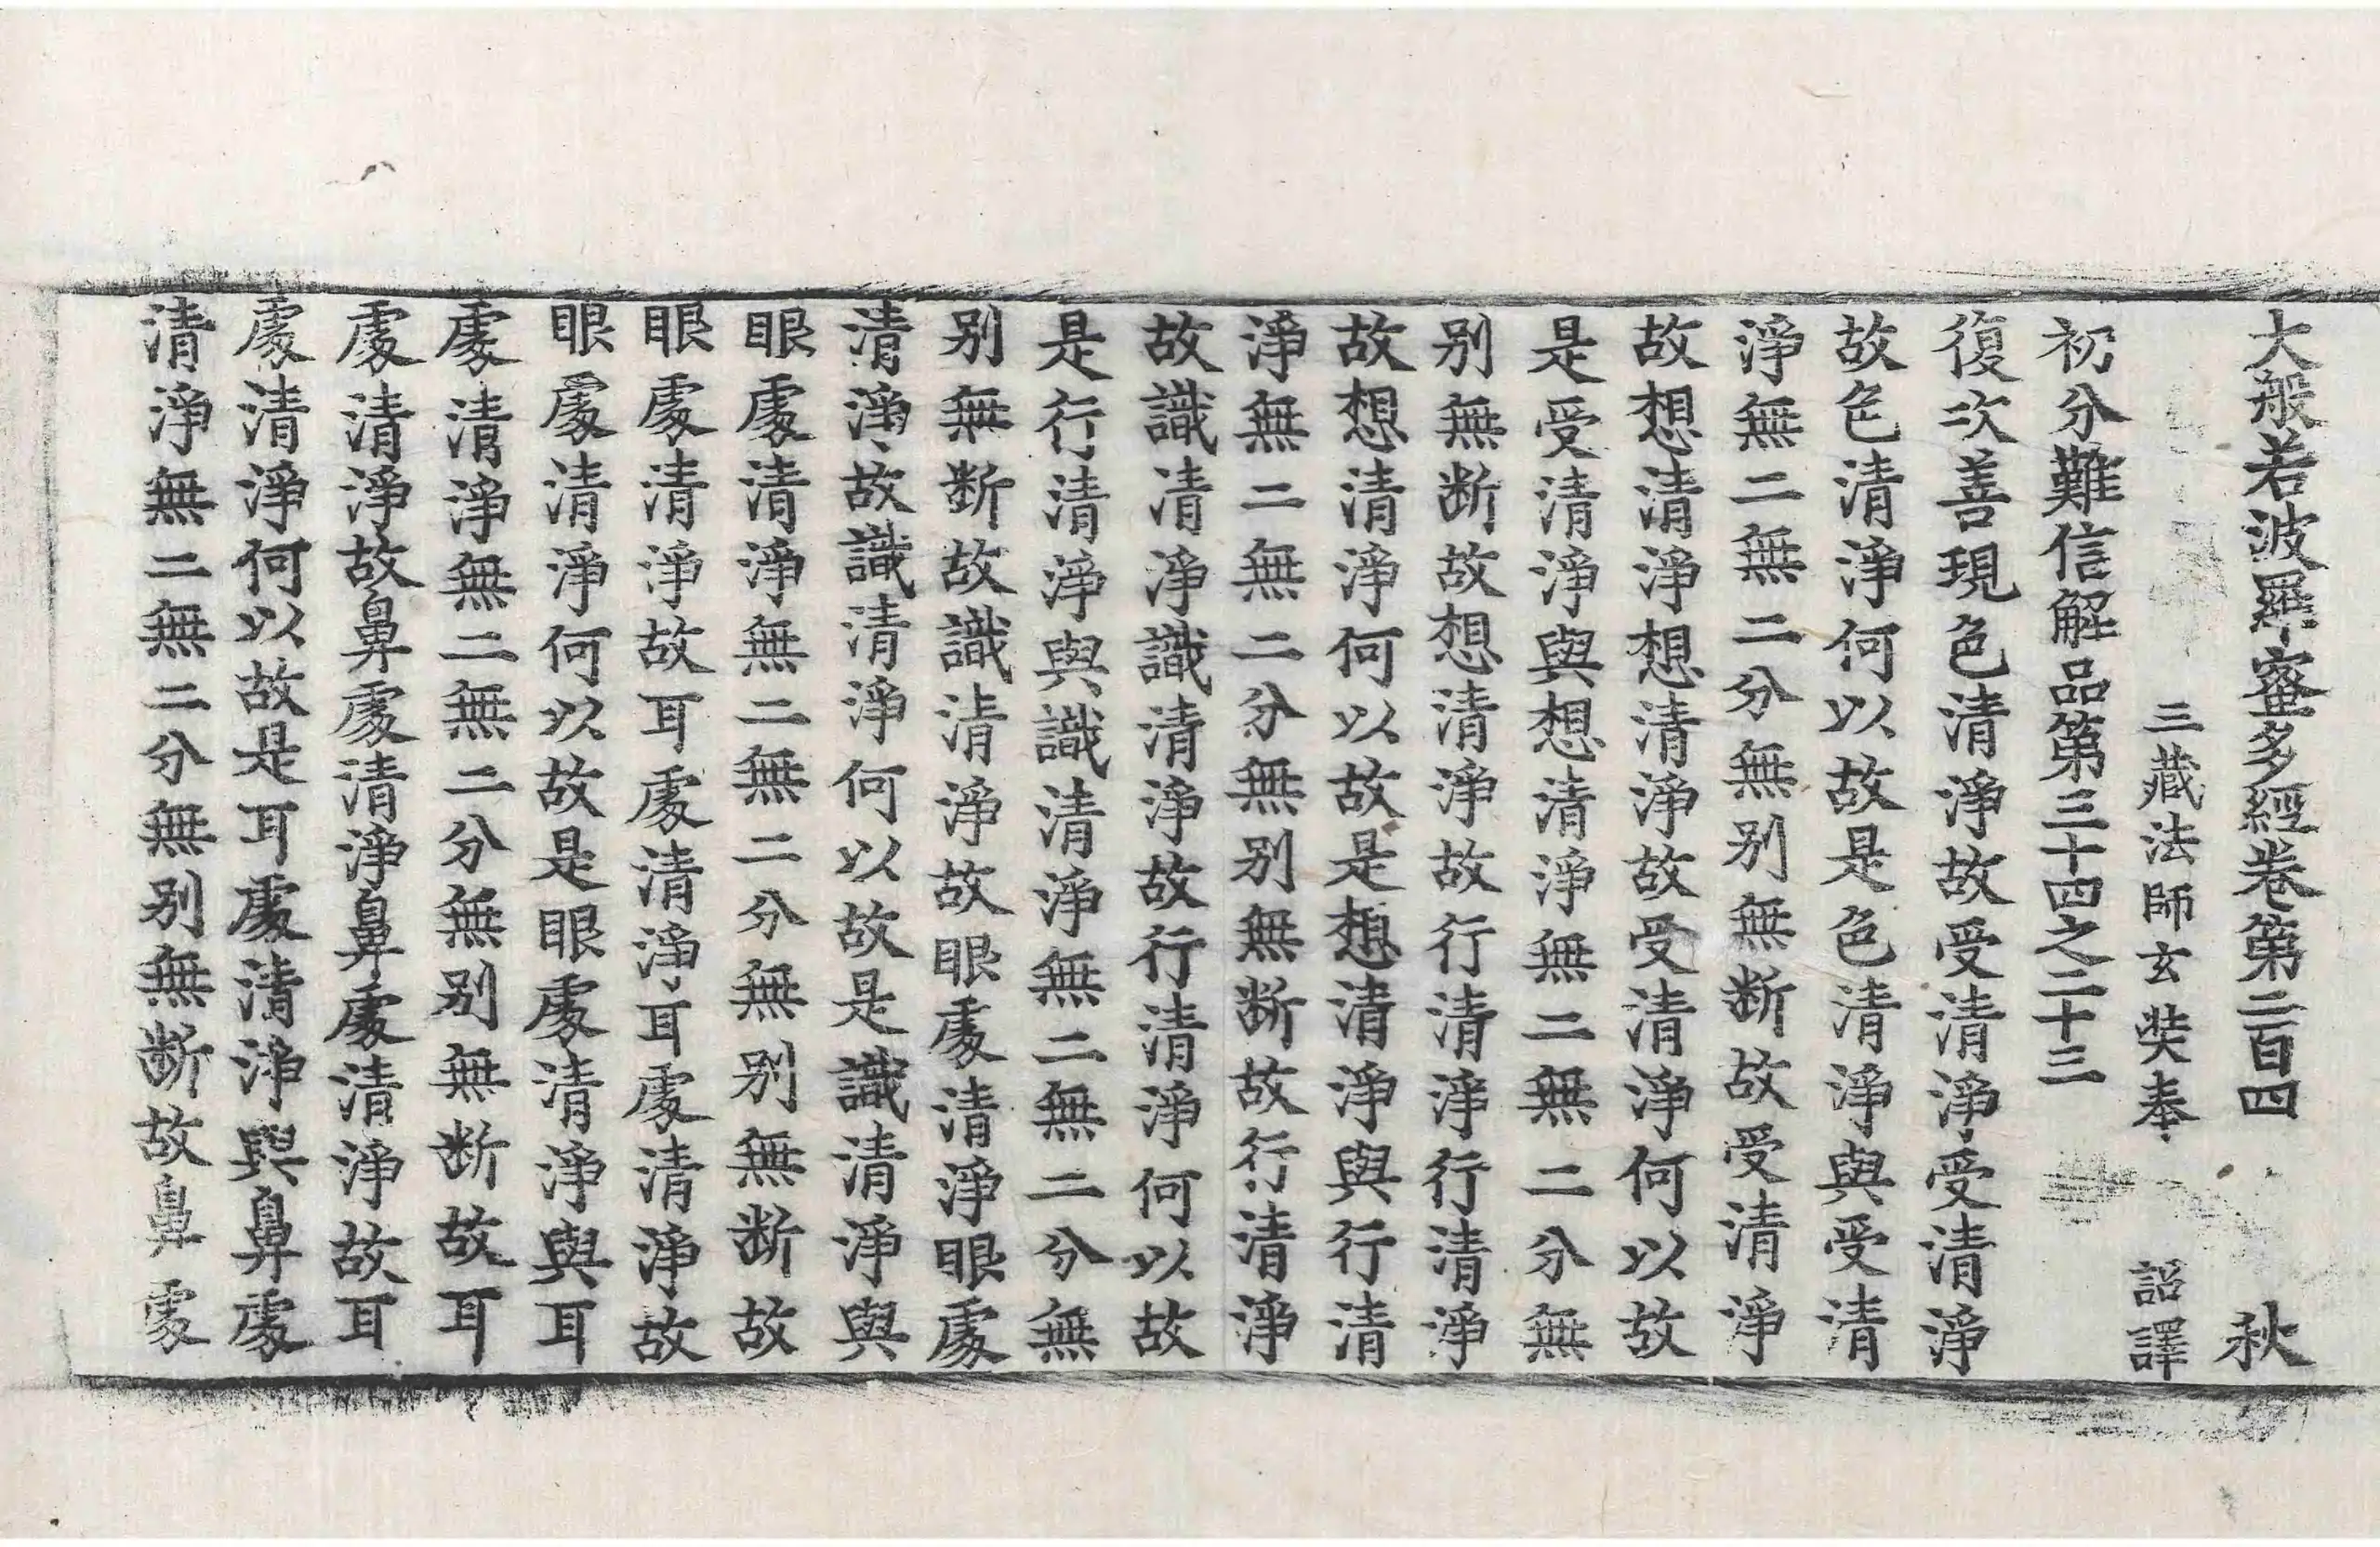 大般若波羅蜜多經卷第二百四 秋
三藏法師玄奘奉 詔譯
初分難信解品第三十四之二十三
復次善現色清淨故受清淨受清淨
故色清淨何以故是色清淨與受清
淨無二無二分無別無斷故受清淨
故想清淨想清淨故受清淨何以故
是受清淨與想清淨無二無二分無
別無斷故想清淨故行清淨行清淨
故想清淨何以故是想清淨與行清
淨無二無二分無別無斷故行清淨
故識清淨識清淨故行清淨何以故
是行清淨與識清淨無二無二分無
別無斷故識清淨故眼處清淨眼處
清淨故識清淨何以故是識清淨與
眼處清淨無二無二分無別無斷故
眼處清淨故耳處清淨耳處清淨故
眼處清淨何以故是眼處清淨與耳
處清淨無二無二分無別無斷故耳
處清淨故鼻處清淨鼻處清淨故耳
處清淨何以故是耳處清淨與鼻處
清淨無二無二分無別無斷故鼻處